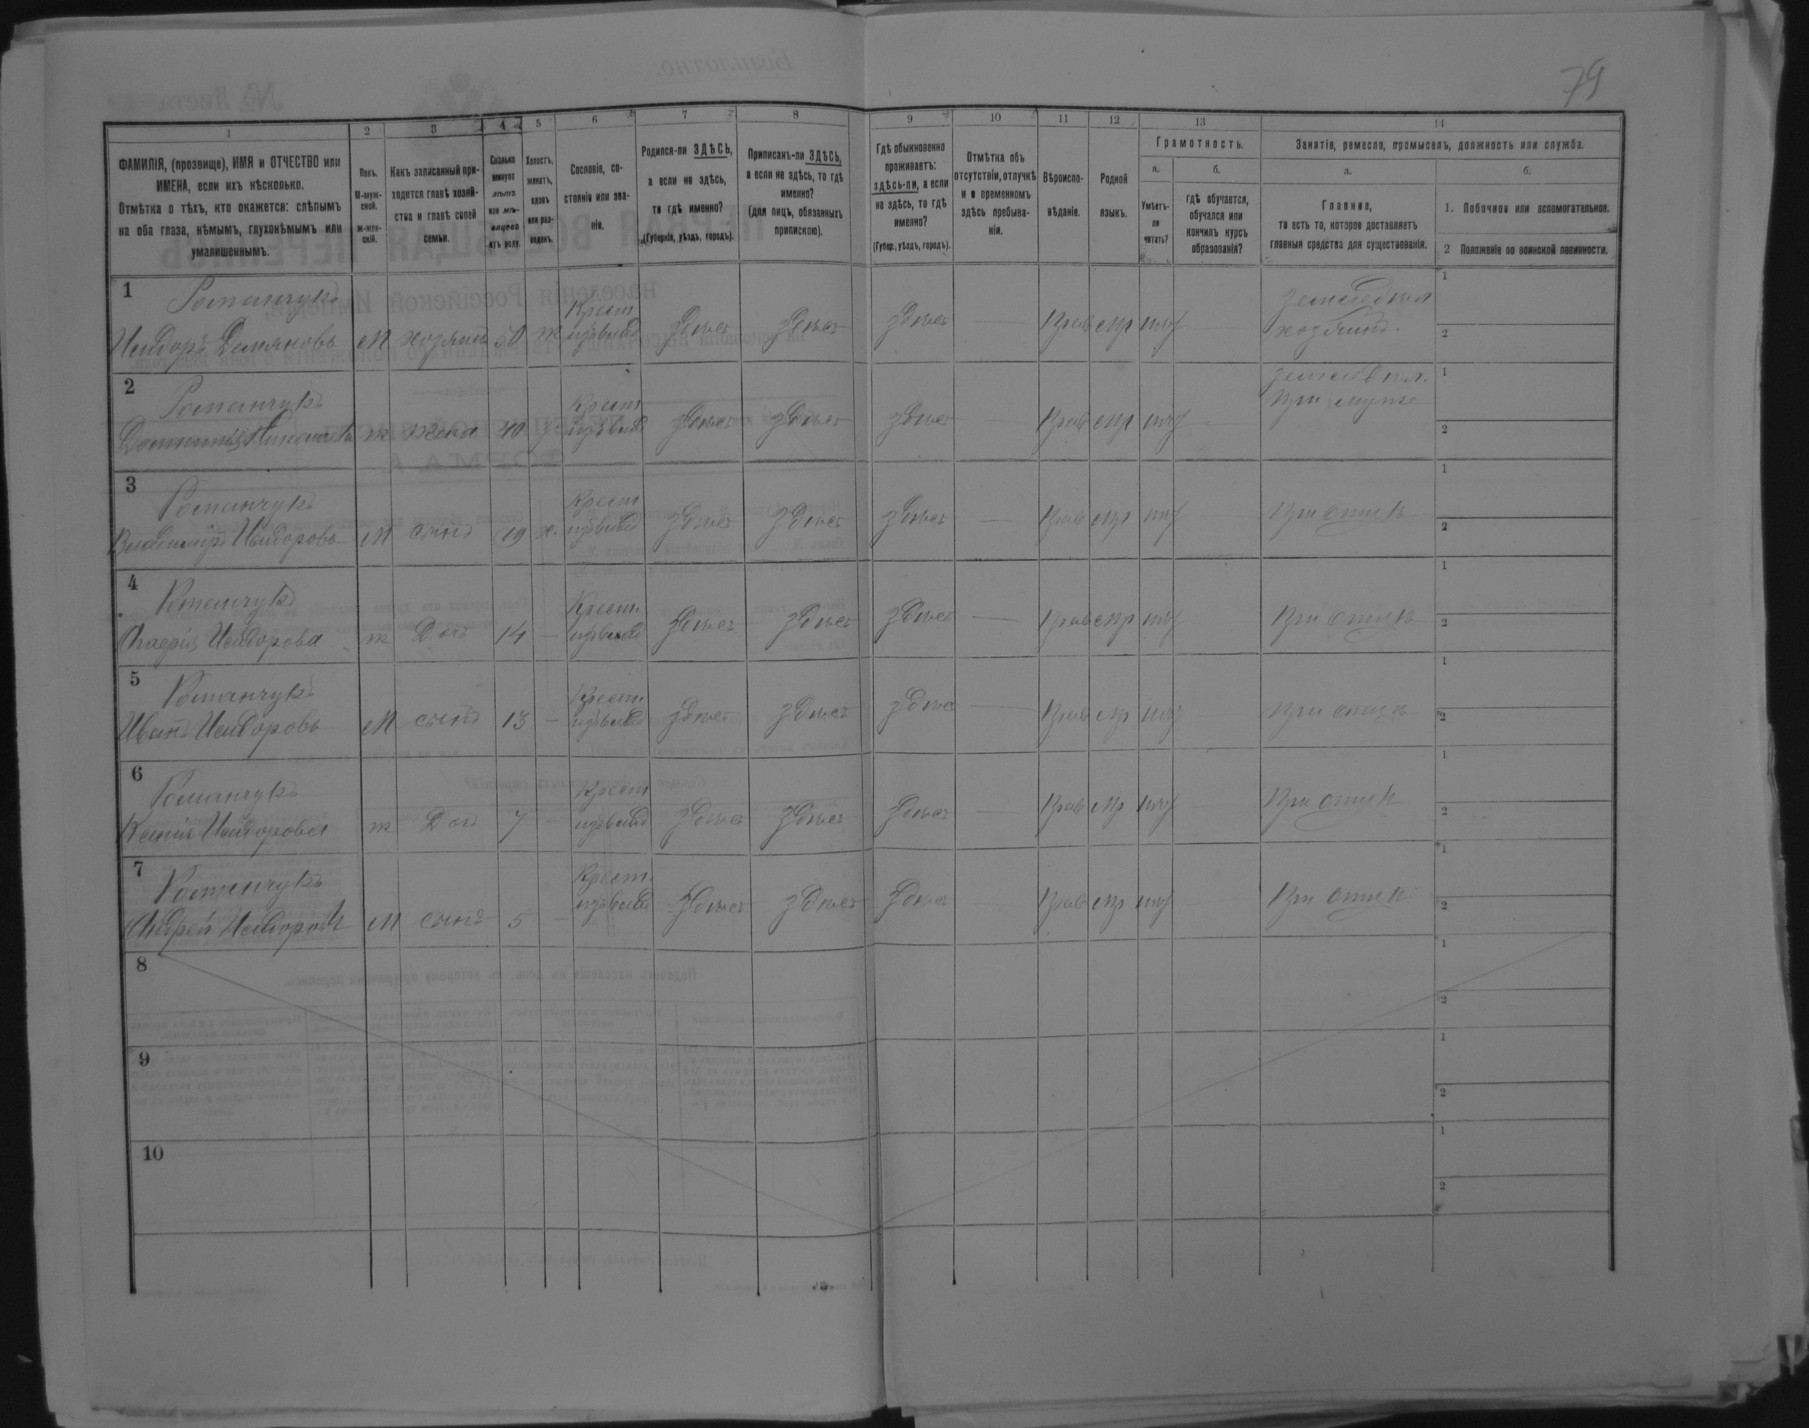 79
1 2 3 4 5 6 7 8 9 10 11 12 13 14
ФАМИЛІЯ, (прозвище), ИМЯ и ОТЧЕСТВО или ИМЕНА, если ихъ нѣсколько.
Отмѣтка о тѣхъ, кто окажется: слѣпымъ на оба глаза, нѣмымъ, глухонѣмымъ или умалишеннымъ.
Полъ. М-мужской. Ж-женскій.
Какъ записанный приходится главѣ хозяйства и главѣ своей семьи.
Сколько минуло лѣтъ или мѣсяцевъ отъ роду.
Холостъ, женатъ, вдовъ или разведенъ.
Сословіе, состояніе или званіе.
Родился-ли ЗДѢСЬ, а если не здѣсь, то гдѣ именно? (Губернія, уѣздъ, городъ).
Приписанъ-ли ЗДѢСЬ, а если не здѣсь, то гдѣ именно? (для лицъ, обязанныхъ припискою).
Гдѣ обыкновенно проживаетъ: здѣсь-ли, а если не здѣсь, то гдѣ именно? (Губер., уѣздъ, городъ).
Отмѣтка объ отсутствіи, отлучкѣ и о временномъ здѣсь пребываніи.
Вѣроисповѣданіе.
Родной языкъ.
Грамотность.
а. Умѣетъ-ли читать?
б. гдѣ обучается, обучался или кончилъ курсъ образованія?
Занятіе, ремесло, промыселъ, должность или служба.
а. Главное, то есть то, которое доставляетъ главныя средства для существованія.
б.
1. Побочное или вспомогательное.
2 Положеніе по воинской повинности.
1 Романчукъ
Исидоръ Демяновъ м хозяинъ 50 ж Крест. здѣсь здѣсь здѣсь — Прав мр нѣт хозяинъ.
1
2
2 Романчукъ
ж жена 40 Крест. здѣсь здѣсь здѣсь — Прав мр нѣт при мужѣ
1
2
3 Романчукъ
Владиміръ Исидоровъ м сынъ 19 х. Крест. здѣсь здѣсь здѣсь — Прав мр нѣт — при отцѣ
1
2
4 Романчукъ
Исидорова ж Доч 14 — Крест. здѣсь здѣсь здѣсь — Прав мр нѣт — при отцѣ
1
2
5 Романчукъ
Иванъ Исидоровъ м сынъ 13 — Крест. здѣсь здѣсь здѣсь — Прав мр нѣт — при отцѣ
1
2
6 Романчукъ
Ксенія Исидорова ж Доч 7 — Крест. здѣсь здѣсь здѣсь — Прав мр нѣт — при отцѣ
1
2
7 Романчукъ
Андрей Исидоровъ м сынъ 5 — Крест. здѣсь здѣсь здѣсь — Прав мр нѣт — при отцѣ
1
2
8
1
2
9
1
2
10
1
2